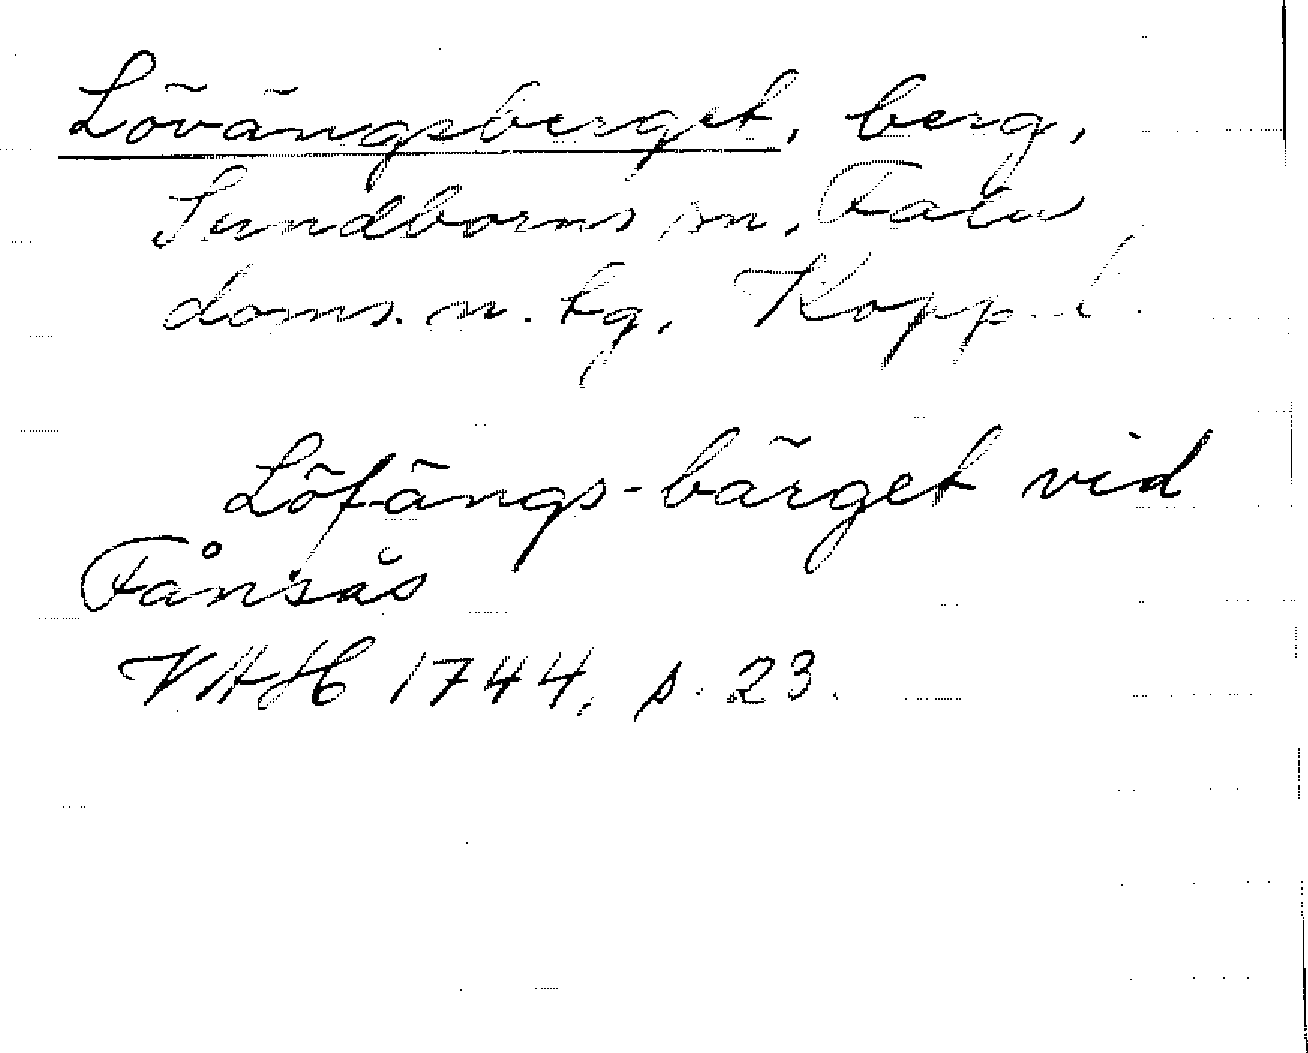 Lövängsberget, berg,
Sundborns sn, Falu
doms. n. tg, Kopp. l.
Löfängs-bärget vid
Fånsås
VAH 1744, s. 23.